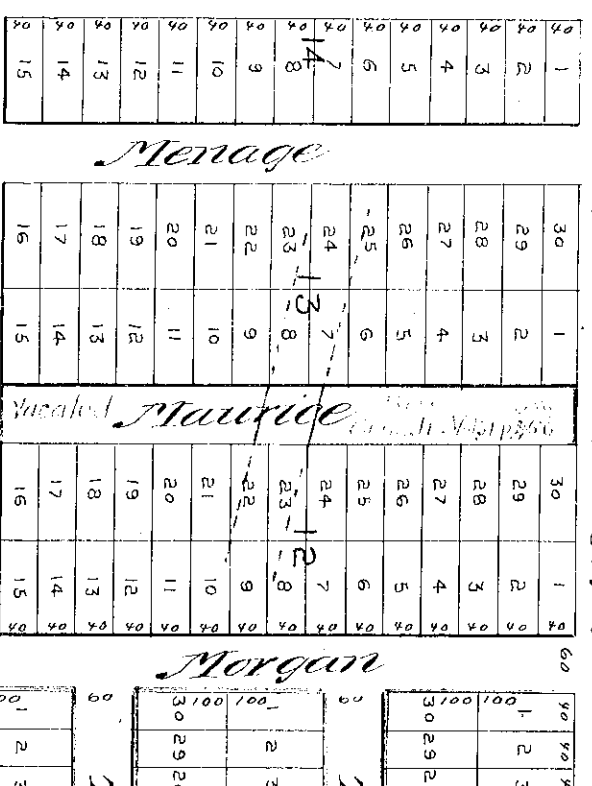 40 40 40 40 40 40 40 40 40 40 40 40 40 40 40
15 14 13 12 11 10 9 8 7 6 5 4 3 2 1
14
Menage
16 17 18 19 20 21 22 23 24 25 26 27 28 29 30
13
15 14 13 12 11 10 9 8 7 6 5 4 3 2 1
Vacated Maurice
16 17 18 19 20 21 22 23 24 25 26 27 28 29 30
12
15 14 13 12 11 10 9 8 7 6 5 4 3 2 1
40 40 40 40 40 40 40 40 40 40 40 40 40 40 40
Morgan 60
1 60 30 100 100 1 60 30 100 100 1 40
2 29 2 29 2 40
3 3 3